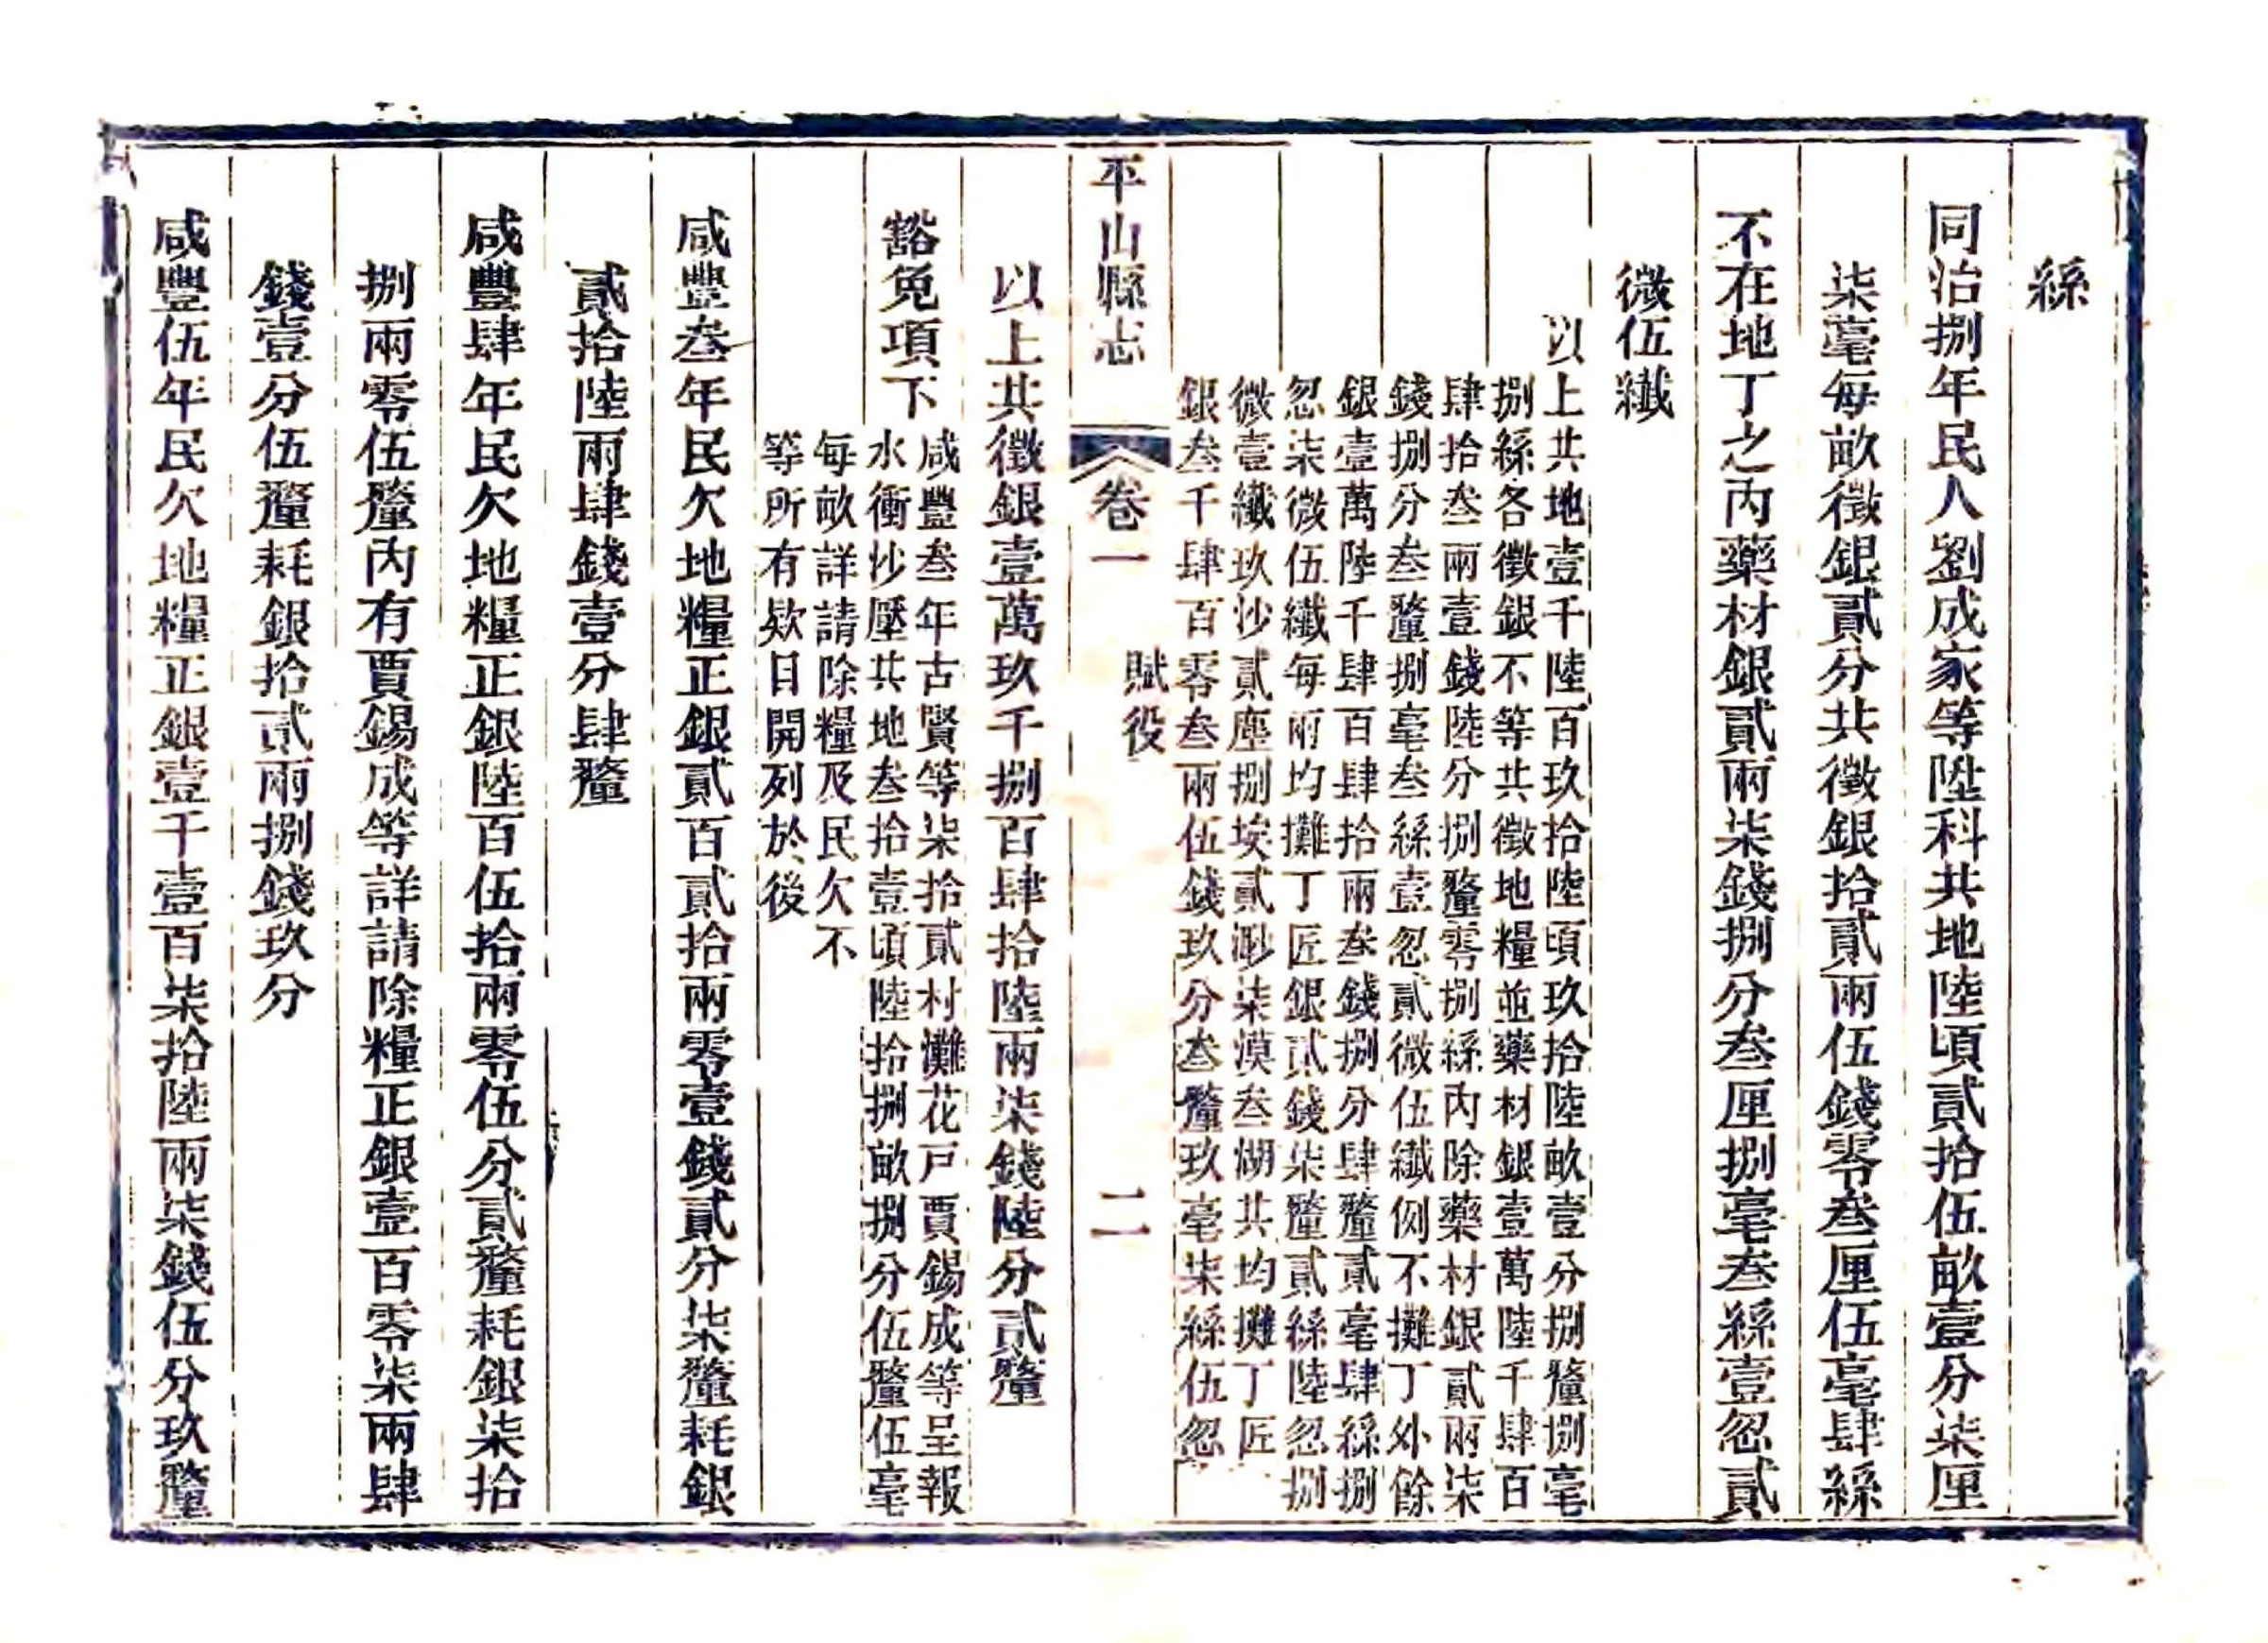 絲
同治捌年民人劉成家等陞科共地陸頃貳拾伍畝壹分柒厘
柒毫每畝徵銀貳分共徵銀拾貳兩伍錢零叁厘伍毫肆絲
不在地丁之內藥材銀貳兩柒錢捌分叁厘捌毫叁絲壹忽貳
微伍纖
以上共地壹千陸百玖拾陸頃玖拾陸畝壹分捌釐捌毫
捌絲各徵銀不等共徵地糧並藥材銀壹萬陸千肆百
肆拾叁兩壹錢陸分捌釐零捌絲內除藥材銀貳兩柒
錢捌分叁釐捌毫叁絲壹忽貳微伍纖例不攤丁外餘
銀壹萬陸千肆百肆拾兩叁錢捌分肆釐貳毫肆絲捌
忽柒微伍纖每兩均攤丁匠銀貳錢柒釐貳絲陸忽捌
微壹纖玖沙貳塵捌埃貳渺柒漠叁湖共均攤丁匠
銀叁千肆百零叁兩伍錢玖分叁釐玖毫柒絲伍忽
平山縣志
卷一
賦役
二
以上共徵銀壹萬玖千捌百肆拾陸兩柒錢陸分貳釐
豁免項下
咸豐叁年古賢等柒拾貳村灘花戸賈錫成等呈報
水衝沙壓共地叁拾壹頃陸拾捌畝捌分伍釐伍毫
每畝詳請除糧及民欠不
等所有欵目開列於後
咸豐叁年民欠地糧正銀貳百貳拾兩零壹錢貳分柒釐耗銀
貳拾陸兩肆錢壹分肆釐
咸豐肆年民欠地糧正銀陸百伍拾兩零伍分貳釐耗銀柒拾
捌兩零伍釐內有賈錫成等詳請除糧正銀壹百零柒兩肆
錢壹分伍釐耗銀拾貳兩捌錢玖分
咸豐伍年民欠地糧正銀壹千壹百柒拾陸兩柒錢伍分玖釐